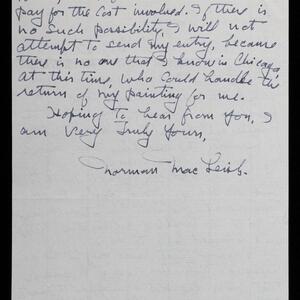 pay for the cost involved. If there is
no such possibility, I will not
attempt to send my entry, because
there is no one that I know in Chicago,
at this time, who could handle the
return of my painting for me.
Hoping to hear from you, I
am Very Truly Yours,
Norman Mac Leish.